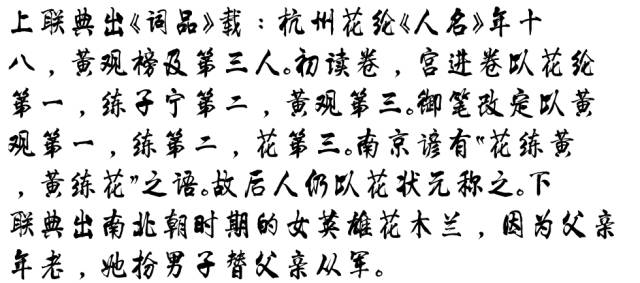 上联典出《词品》载：杭州花纶《人名》年十
八，黄观榜及第三人。初读卷，宫进卷以花纶
第一，练子宁第二，黄观第三。御笔改定以黄
观第一，练第二，花第三。南京谚有“花练黄
，黄练花”之语。故后人仍以花状元称之。下
联典出南北朝时期的女英雄花木兰，因为父亲
年老，她扮男子替父亲从军。